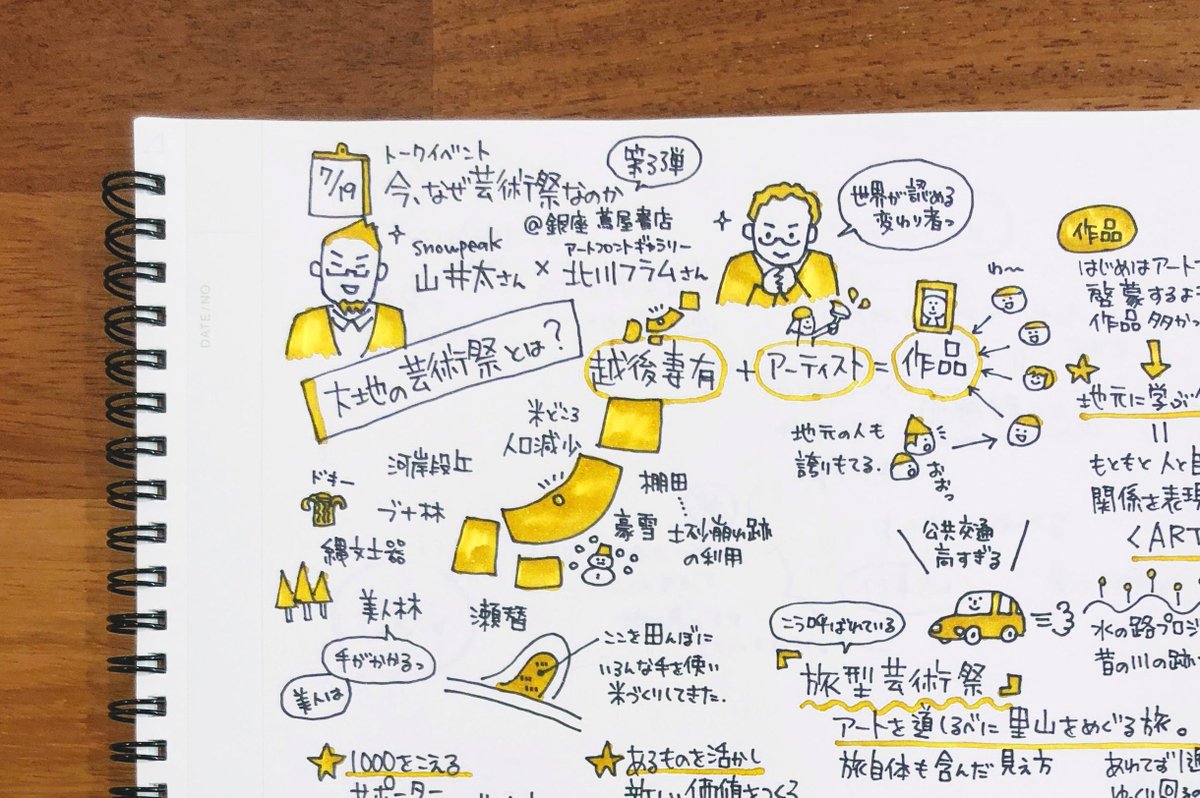 DATE/NO
7/19
トークイベント
今、なぜ芸術祭なのか
第3弾
@銀座 蔦屋書店
snowpeak
山井太さん
×
アートフロントギャラリー
北川フラムさん
世界が認める
変わり者っ
大地の芸術祭とは?
越後妻有 + アーティスト = 作品
わ〜
地元の人も
誇りもてる.
おおっ
米どころ
人口減少
河岸段丘
ドキー
ブナ林
縄文土器
棚田
豪雪
土砂崩れ跡
の利用
美人林
手がかかるっ
美人は
瀬替
ここを田んぼに
いろんな手を使い
米づくりしてきた.
公共交通
高すぎる
こう呼ばれている
旅型芸術祭
アートを道しるべに里山をめぐる旅。
旅自体も含んだ見え方
1000をこえる
サポーター
あるものを活かし
新しい価値をつくる
作品
はじめはアートで
啓蒙するよ
作品多かっ
地元に学ぶ
=
もともと人と自
関係を表現
<ART
水の路プロジ
昔の川の跡
あわてず1週
ゆっくり回る